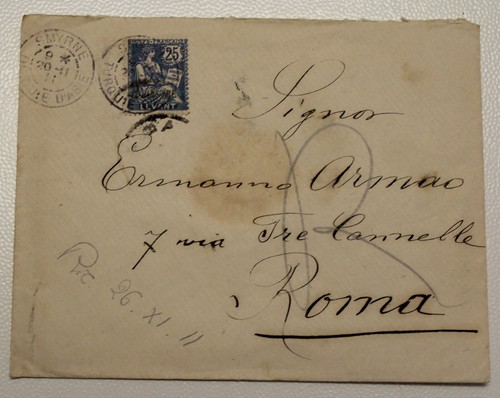 SMYRNE
9 *
20 -11
11
TURQUIE D'ASIE
POSTE FRANÇAISE
25
LEVANT
Signor
Ermanno Armao
7 via Tre Cannelle
Roma
Ric 26. XI. 11
R